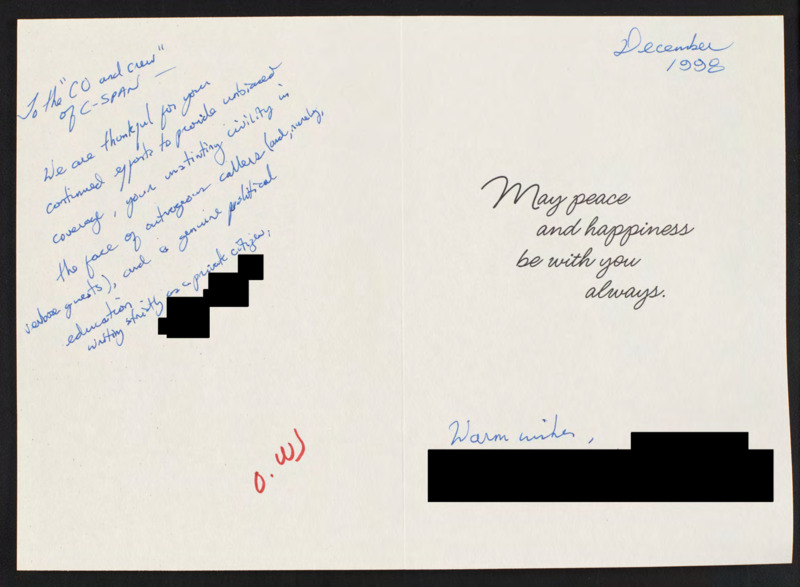 To the "CO and crew"
of C-SPAN —
We are thankful for your
continued efforts to provide unbiased
coverage, your unstinting civility in
the face of outrageous callers (and, rarely,
verbose guests), and a genuine political
education.
writing strictly as a private citizen,
O. W
December
1998
May peace
and happiness
be with you
always.
Warm wishes,